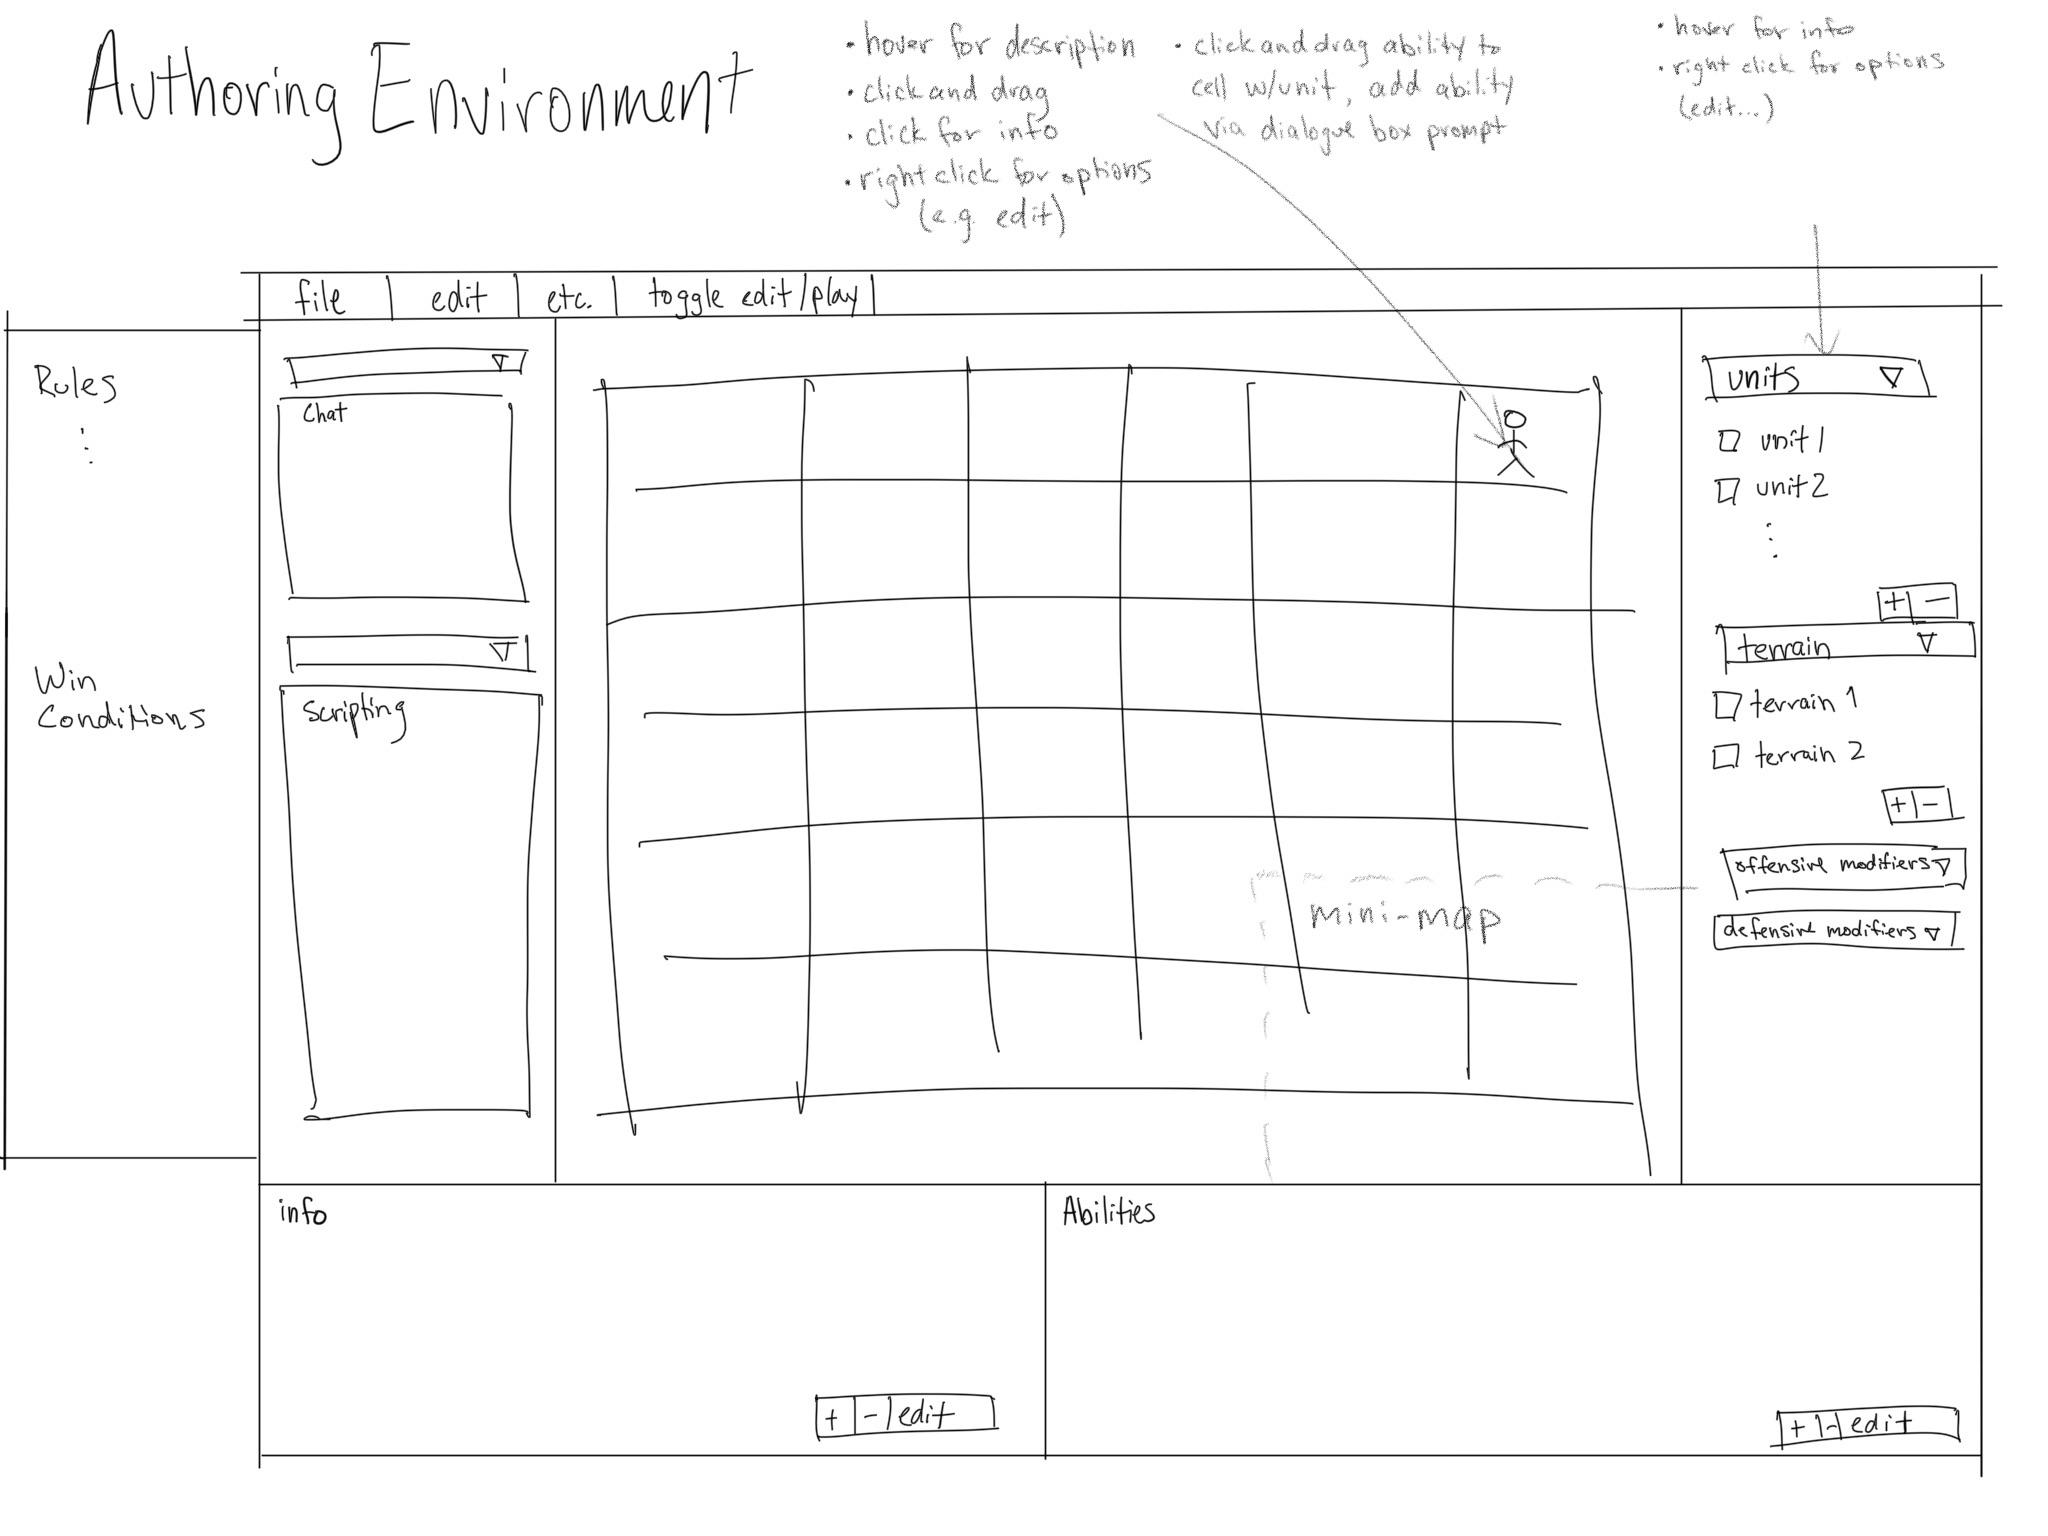 Authoring Environment
• hover for description
• click and drag
• click for info
• right click for options
(e.g. edit)
• click and drag ability to
cell w/unit, add ability
via dialogue box prompt
• hover for info
• right click for options
(edit...)
file | edit | etc. | toggle edit/play |
Rules
Win
Conditions
Chat
Scripting
mini-map
units
unit 1
unit 2
+ | -
terrain
terrain 1
terrain 2
+ | -
offensive modifiers
defensive modifiers
info
+ | - | edit
Abilities
+ | - | edit